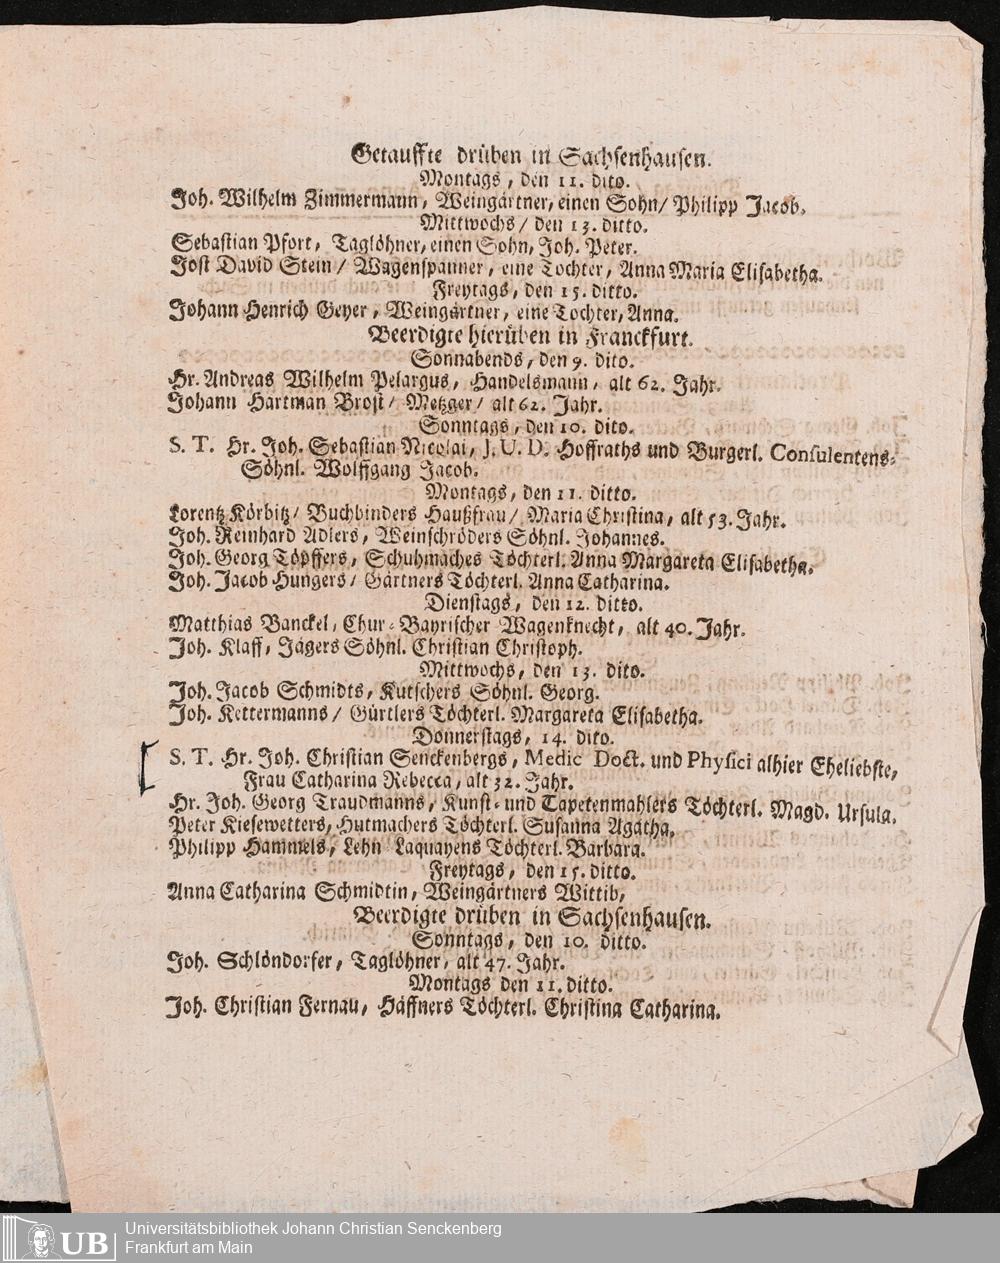 Getauffte drüben in Sachsenhausen.
Montags, den 11. dito.
Joh. Wilhelm Zimmermann, Weingärtner, einen Sohn/ Philipp Jacob,
Mittwochs/ den 13. ditto.
Sebastian Pfort, Taglöhner, einen Sohn, Joh. Peter.
Jost David Stein/ Wagenspanner, eine Tochter, Anna Maria Elisabetha.
Freytags, den 15. ditto.
Johann Henrich Geyer, Weingärtner, eine Tochter, Anna.
Beerdigte hierüben in Franckfurt.
Sonnabends, den 9. dito.
Hr. Andreas Wilhelm Pelargus, Handelsmann, alt 62. Jahr.
Johann Hartman Brost/ Metzger/ alt 62. Jahr.
Sonntags, den 10. dito.
S. T. Hr. Joh. Sebastian Nicolai, J. U. D. Hoffraths und Burgerl. Consulentens-
Söhnl. Wolffgang Jacob.
Montags, den 11. ditto.
Lorentz Körbitz/ Buchbinders Haußfrau/ Maria Christina, alt 53. Jahr.
Joh. Reinhard Adlers, Weinschröders Söhnl. Johannes.
Joh. Georg Töpffers, Schuhmaches Töchterl. Anna Margareta Elisabetha.
Joh. Jacob Hungers/ Gärtners Töchterl. Anna Catharina.
Dienstags, den 12. ditto.
Matthias Banckel, Chur-Bayrischer Wagenknecht, alt 40. Jahr.
Joh. Klaff, Jägers Söhnl. Christian Christoph.
Mittwochs, den 13. dito.
Joh. Jacob Schmidts, Kutschers Söhnl. Georg.
Joh. Kettermanns/ Gürtlers Töchterl. Margareta Elisabetha.
Donnerstags, 14. dito.
S. T. Hr. Joh. Christian Senckenbergs, Medic Doct. und Physici alhier Eheliebste,
Frau Catharina Rebecca, alt 32. Jahr.
Hr. Joh. Georg Traudmanns, Kunst- und Tapetenmahlers Töchterl. Magd. Ursula.
Peter Kiesewetters, Hutmachers Töchterl. Susanna Agatha,
Philipp Hammels, Lehn Laquayens Töchterl. Barbara.
Freytags, den 15. ditto.
Anna Catharina Schmidtin, Weingärtners Wittib,
Beerdigte drüben in Sachsenhausen.
Sonntags, den 10. ditto.
Joh. Schlöndorfer, Taglöhner, alt 47. Jahr.
Montags den 11. ditto.
Joh. Christian Fernau, Häffners Töchterl. Christina Catharina.
UB
Universitätsbibliothek Johann Christian Senckenberg
Frankfurt am Main